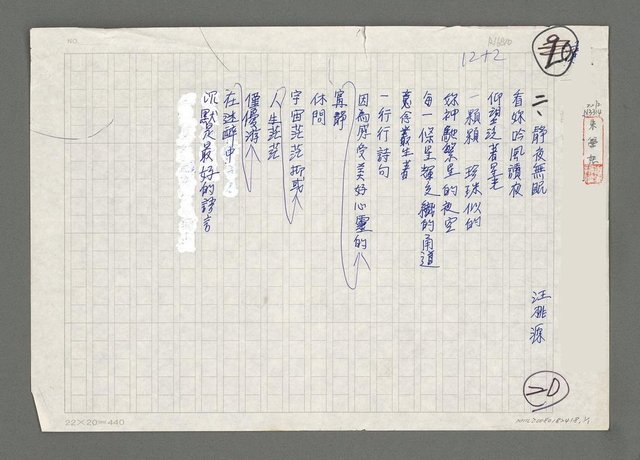 二、靜夜無眠
汪啟疆
看妳吟風讀夜
仰望泛著星光
一顆顆 珍珠似的
妳押馳繁星的夜空
每一條星輝交織的甬道
意念叢生著
一行行詩句
因為感受美好心靈的
寂靜
休問
宇宙茫茫抑或
人生茫茫
僅優游
在迷醉中
沉默是最好的語言
12+2
20
NO.
22×20=440